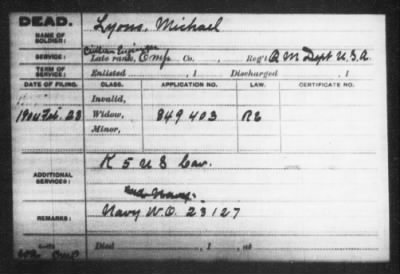 DEAD.
NAME OF SOLDIER: Lyons, Michael
Civilian
SERVICE: Late rank, Emp Co. , Reg't Q M Dept U.S.A.
TERM OF SERVICE: Enlisted , 1 Discharged , 1
DATE OF FILING. CLASS. APPLICATION NO. LAW. CERTIFICATE NO.
Invalid,
1904 Feb. 23 Widow, 849403 RE
Minor,
ADDITIONAL SERVICES: K 5 U S Cav.
REMARKS: Navy W.O. 23127
Died , 1 , at